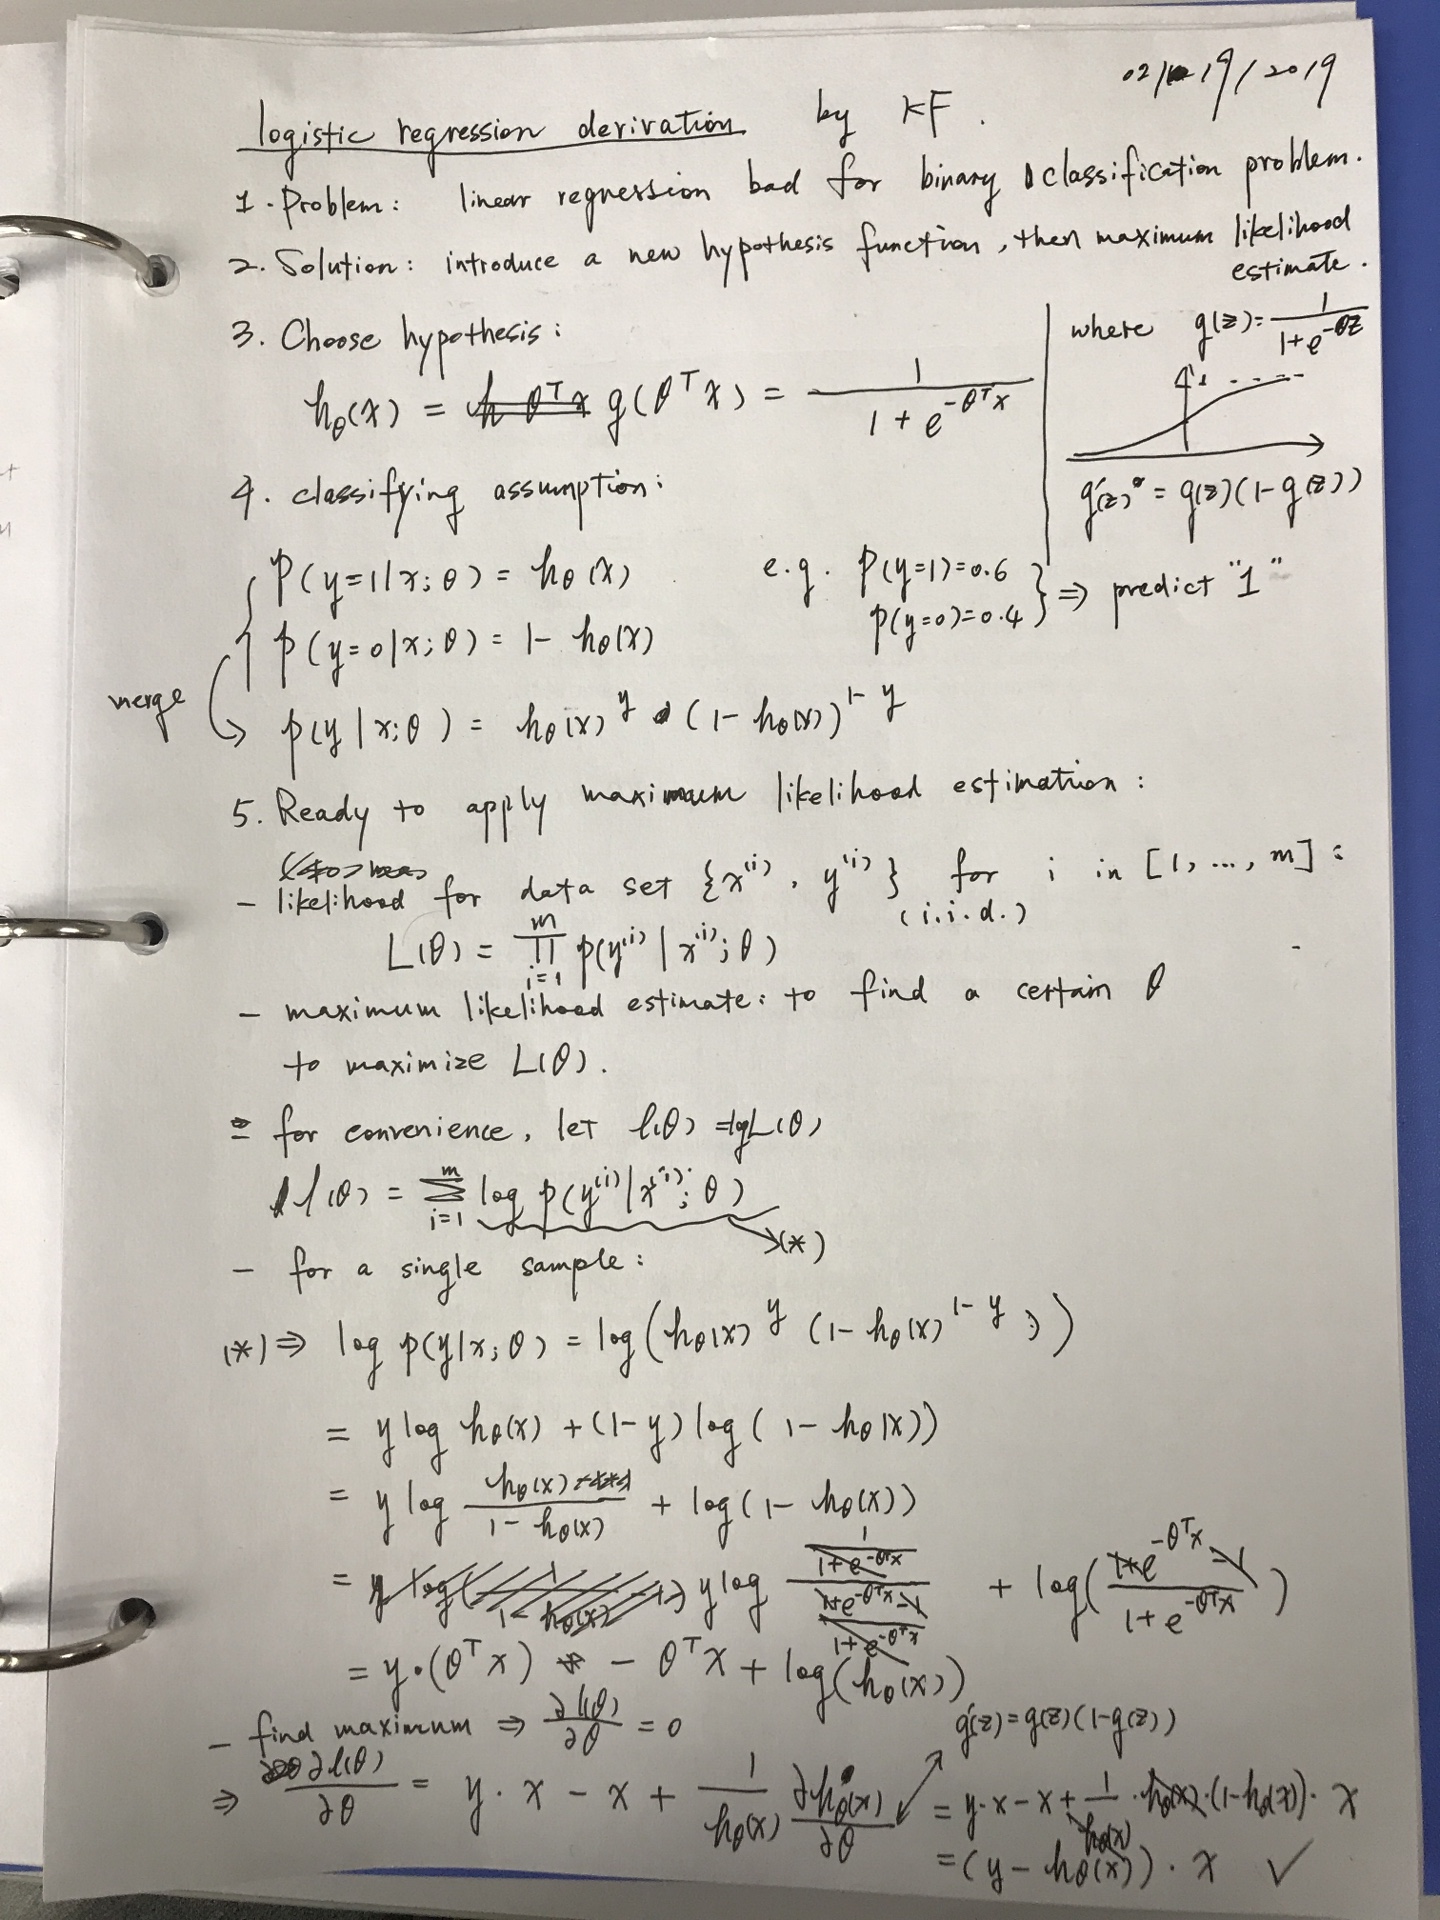 02/19/2019
logistic regression derivation by KF.
1. Problem: linear regression bad for binary classification problem.
2. Solution: introduce a new hypothesis function, then maximum likelihood
estimate.
3. Choose hypothesis:
h_θ(x) = g(θ^T x) = 1 / (1 + e^{-θ^T x})
where g(z) = 1 / (1 + e^{-θz})
1
g'(z) = g(z)(1-g(z))
4. classifying assumption:
P(y=1|x;θ) = h_θ(x)
P(y=0|x;θ) = 1 - h_θ(x)
e.g. P(y=1)=0.6
P(y=0)=0.4 } ⇒ predict "1"
merge
p(y|x;θ) = h_θ(x)^y · (1 - h_θ(x))^{1-y}
5. Ready to apply maximum likelihood estimation:
- likelihood for data set {x^{(i)}, y^{(i)}} for i in [1, ..., m]:
(i.i.d.)
L(θ) = ∏_{i=1}^{m} p(y^{(i)} | x^{(i)}; θ)
- maximum likelihood estimate: to find a certain θ
to maximize L(θ).
- for convenience, let l(θ) = lgL(θ)
l(θ) = ∑_{i=1}^{m} log p(y^{(i)} | x^{(i)}; θ)
(*)
- for a single sample:
(*) ⇒ log p(y|x;θ) = log(h_θ(x)^y (1 - h_θ(x)^{1-y}))
= y log h_θ(x) + (1-y) log(1 - h_θ(x))
= y log h_θ(x) / (1 - h_θ(x)) + log(1 - h_θ(x))
= y log (1 / (1+e^{-θ^T x})) / ((1+e^{-θ^T x}-1) / (1+e^{-θ^T x})) + log((1+e^{-θ^T x}-1) / (1+e^{-θ^T x}))
= y·(θ^T x) - θ^T x + log(h_θ(x))
- find maximum ⇒ ∂l(θ)/∂θ = 0
g'(z) = g(z)(1-g(z))
⇒ ∂l(θ)/∂θ = y·x - x + 1/h_θ(x) ∂h_θ(x)/∂θ
= y·x - x + 1/h_θ(x) · h_θ(x)·(1-h_θ(x))· x
= (y - h_θ(x))· x ✓